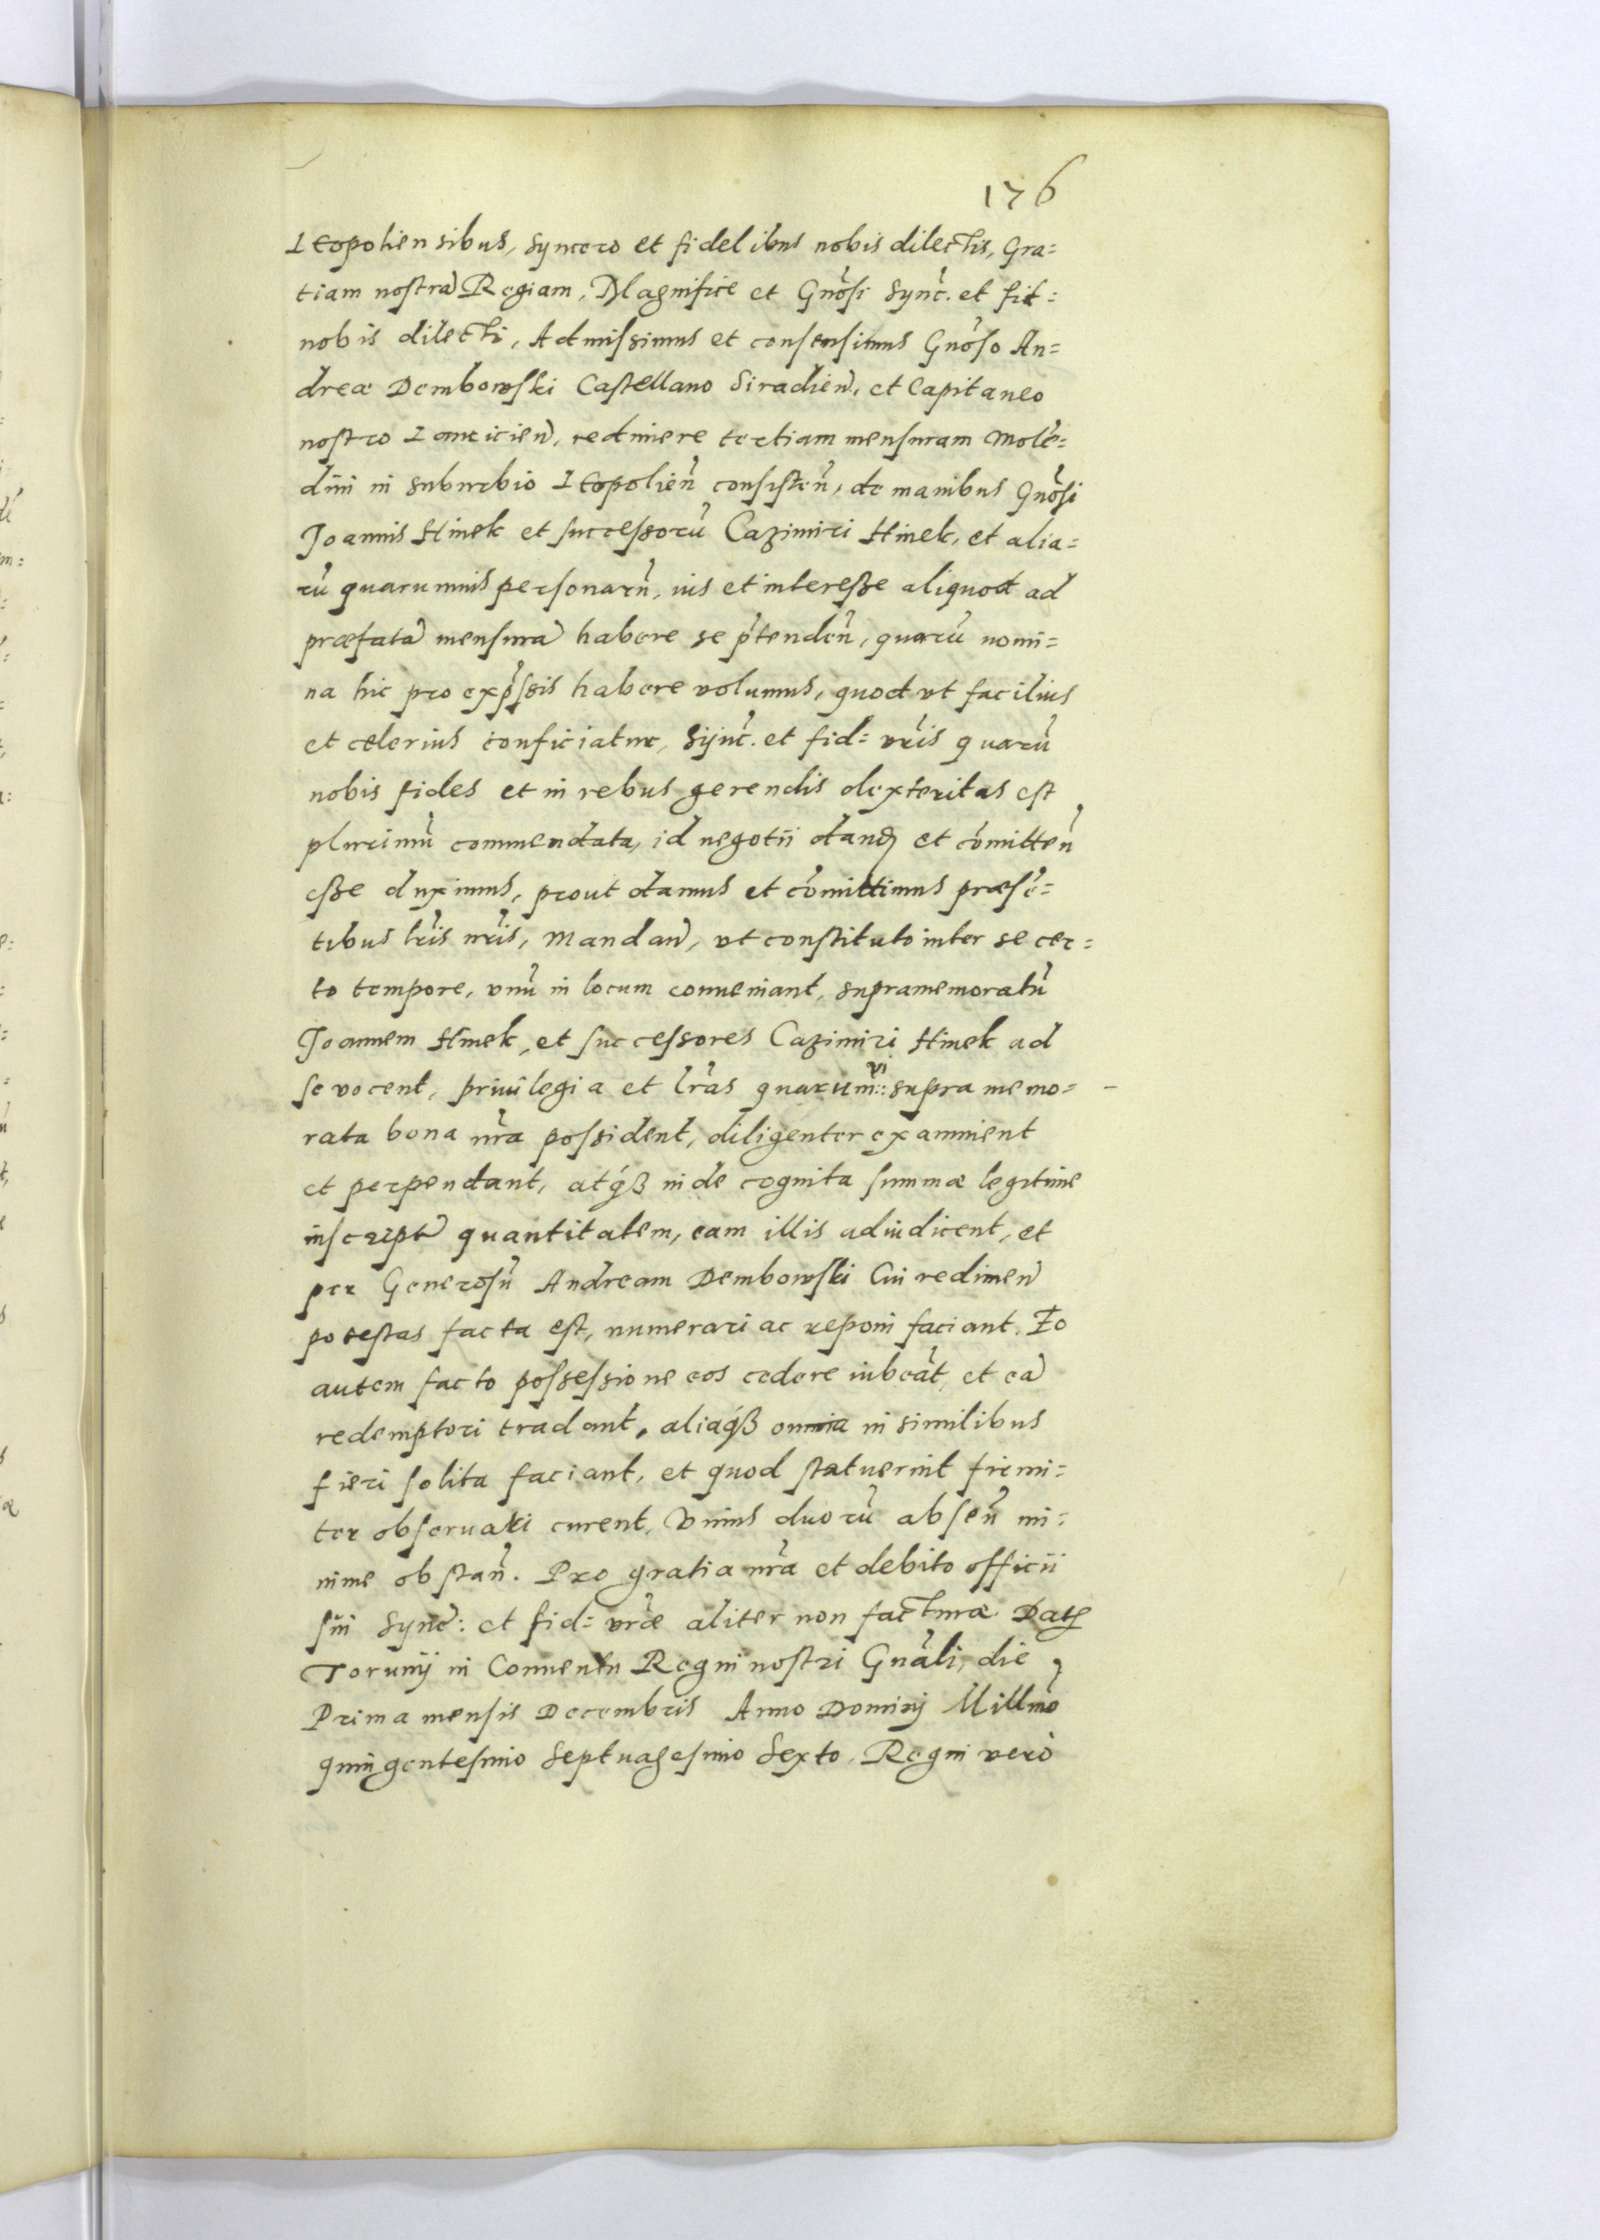 176
Leopoliensibus, syncero et fidelibus nobis dilectis, Gra=
tiam nostrã Regiam, Magnifice et Gnõsi Sync̃. et fid=
nobis dilecti, Admissimus et consensimus Gnõso An=
dreæ Dembowski Castellano Siradieñ, et Capitaneo
nostro Lanicicieñ, redimere tertiam mensuram Molẽ=
dini in suburbio Leopolieñ consisteñ, de manibus Gnõsi
Joannis Hinek et successorũ Cazimiri Hinek, et alia=
rũ quarumuis personarũ, ius et interesse aliquod ad
præfatã mensurã habere se p̃tendeñ, quarũ nomi=
na hic pro exp̃ssis habere volumus, quod vt facilius
et celerius conficiatur, Sync̃. et fid= vr̃is quarũ
nobis fides et in rebus gerendis dexteritas est
plurimũ commendata, id negotii dand et cõmitteñ
esse duximus, prout damus et cõmittimus præsẽ=
tibus lr̃is nr̃is, Mandañ, vt constituto inter se cer=
to tempore, vnũ in locum conueniant, supramemoratũ
Joannem Hinek, et successores Cazimiri Hinek ad
se vocent, priuilegia et lr̃as quarum vi supra memo=
rata bona nr̃a possident, diligenter examinent
et perpendant, atq́ꝫ inde cognita summæ legitime
inscriptæ quantitatem, eam illis adiudicent, et
per Generosũ Andream Dembowski Cui redimeñ
potestas facta est, numerari ac reponi faciant. Eo
autem facto possessione eos cedere iubeãt, et eã
redemptori tradant, aliaq́ꝫ omnia in similibus
fieri solita faciant, et quod statuerint firmi=
ter obseruari curent, Vnius duorũ abseñ mi=
nime obstañ. Pro gratia nr̃a et debito officii
sui Sync̃: et fid= vr̃æ aliter non facturæ. Dat
Torunij in Conuentu Regni nostri Gnãli, die
Prima mensis Decembris Anno Dominj Millmõ
quingentesimo Septuagesimo Sexto, Regni verò